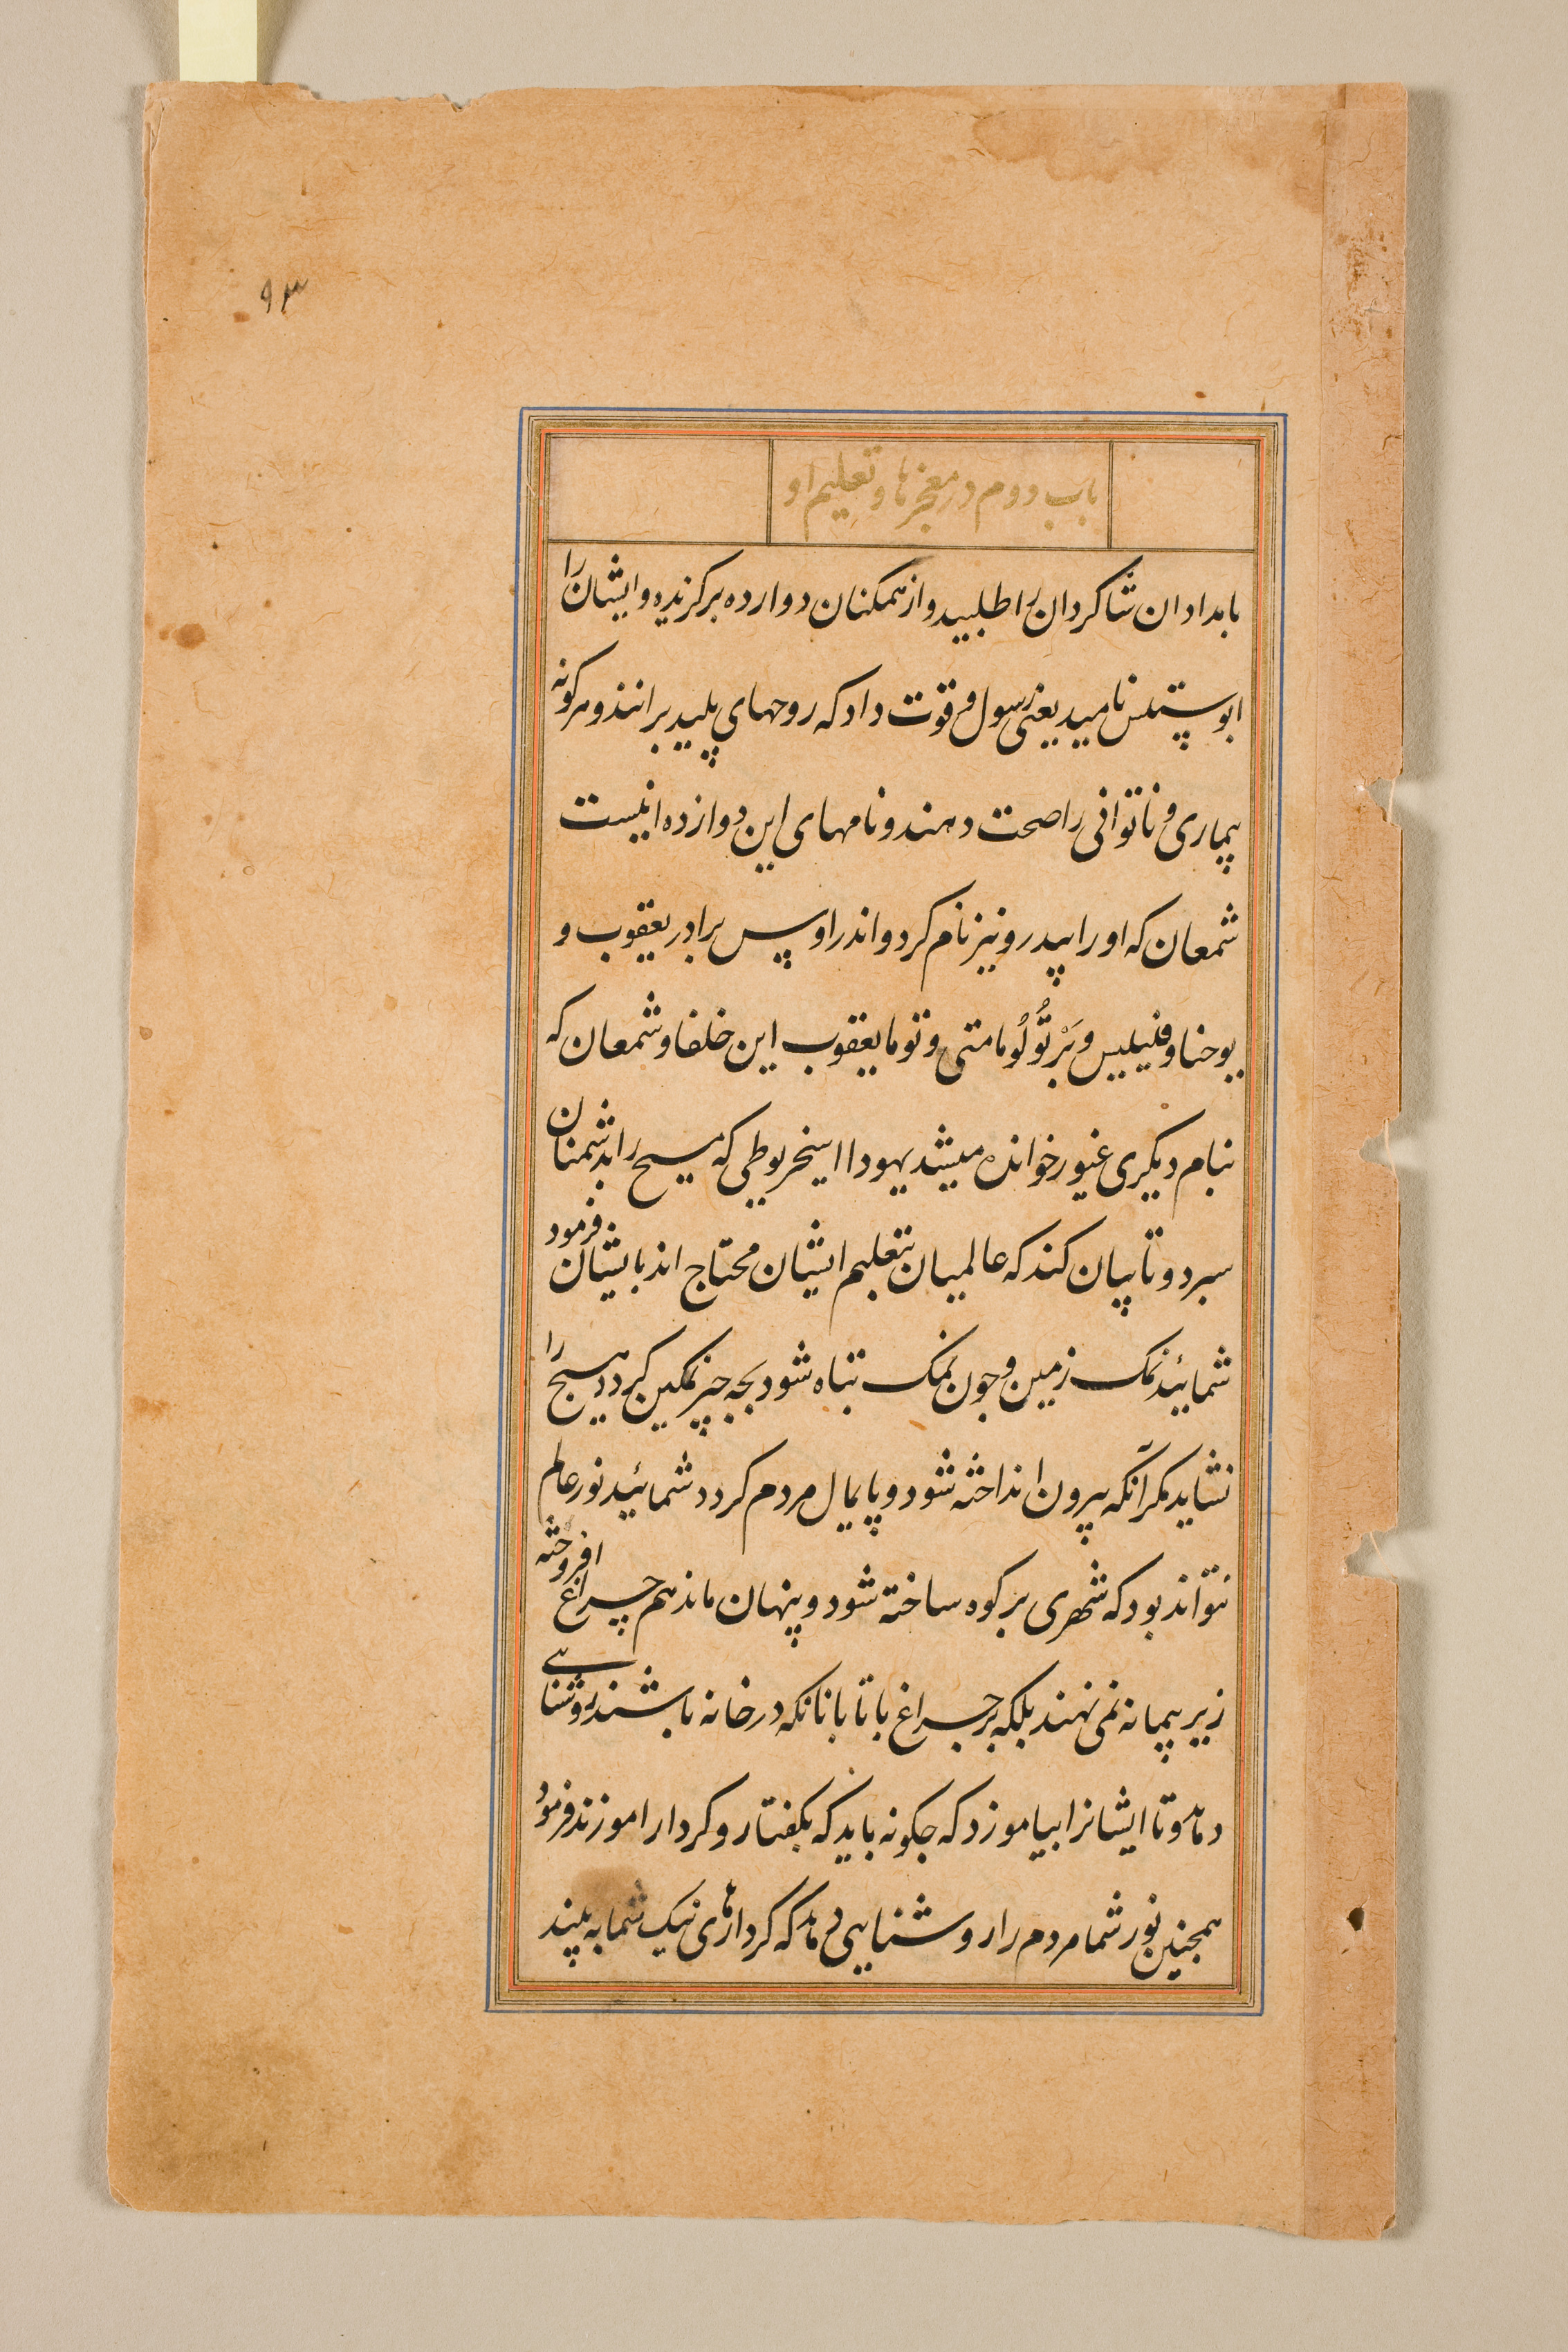 ۹۳
باب دووم در معجزها و تعلیم او
بامدادان شاکردان را طلبید و از همکنان دوارده برکزیده و ایشان را
ابوستلس نامید یعنی رسول و قوت داد که روحهای پلید برانند و هرکونه
بیماری و ناتوانی را صحت دهند و نامهای این دوازده اینست
شمعان که او را پیدرو نیز نام کرد و اندراوس برادر یعقوب و
یوحنا و فیلیپس و بَرْتُّولُوما متی و توما یعقوب ابن خلفا و شمعان که
بنام دیکری غیور خوانده میشد یهودا اسخریوطی که مسیح را بدشمنان
سبرد و تا بیان کند که عالمیان بتعلیم ایشان محتاج اند بایشان فرمود
شمائید نمک زمین و جون نمک تباه شود بجه چیز نمکین کردد هیچ را
نشاید مکر آنکه بیرون انداخته شود و پایمال مردم کردد شمائید نور عالم
نتواند بود که شهری بر کوه ساخته شود و پنهان ماند هم چراغ افروخته
زیر پیمانه نمی نهند بلکه بر چراغ با تا بانانکه در خانه باشند روشنایی
دماند و تا ایشانرا بیاموزد که جکونه باید که بکفتار و کردار اموزند فرمود
همچنین نور شما مردم را روشنایی دماند که کردارهای نیک شما به بینند